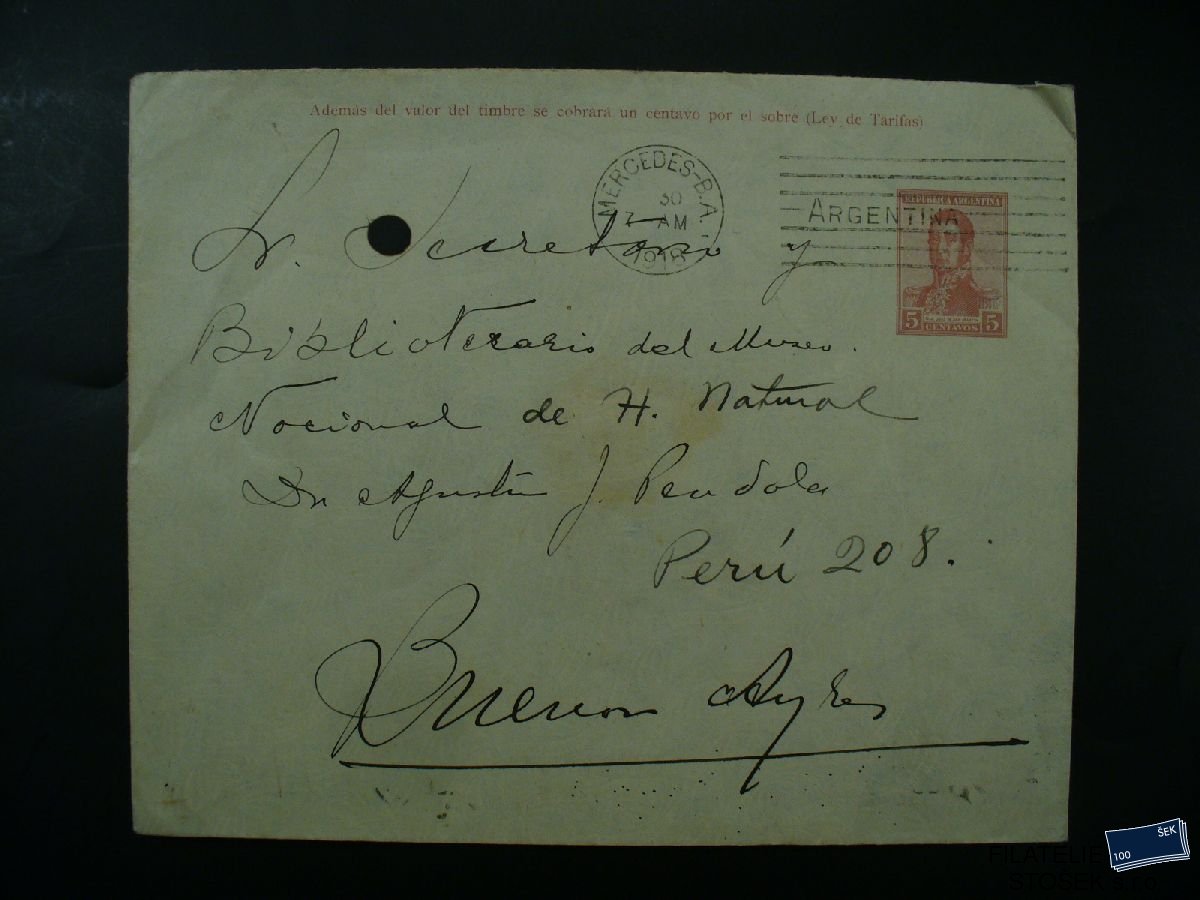 Además del valor del timbre se cobrará un centavo por el sobre (Ley de Tarifas)
MERCEDES-B.A.
30
7 AM
ARGENTINA
REPUBLICA ARGENTINA
5 CENTAVOS 5
Sr. Secretario y
Bibliotecario del Museo
Nacional de H. Natural
Dn Agustín J. Pendola
Perú 208.
Buenos Ayres
ŠEK
100
FILATELIE
STOŠEK s.r.o.